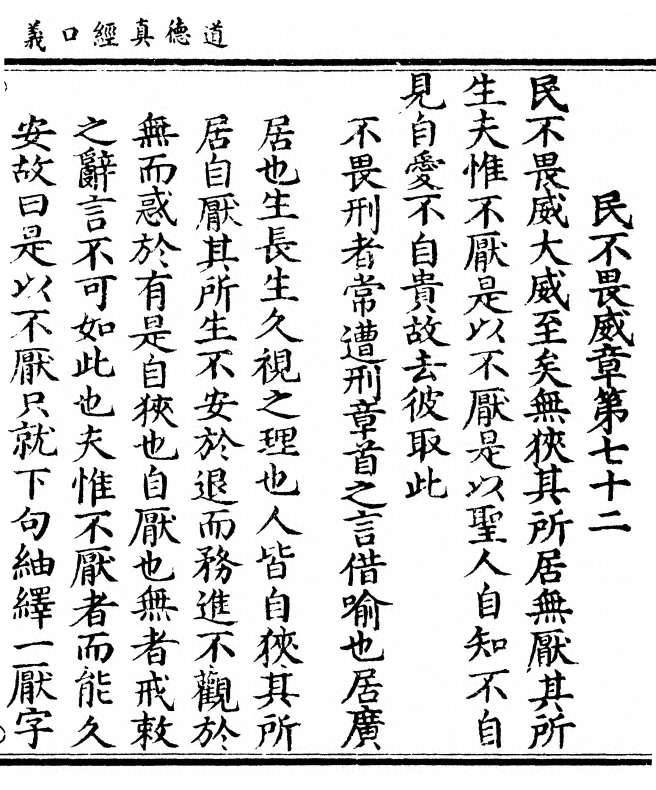 道德真經口義
民不畏威章第七十二
民不畏威大威至矣無狹其所居無厭其所
生夫惟不厭是以不厭是以聖人自知不自
見自愛不自貴故去彼取此
不畏刑者常遭刑章首之言借喻也居廣
居也生長生久視之理也人皆自狹其所
居自厭其所生不安於退而務進不觀於
無而惑於有是自狹也自厭也無者戒敕
之辭言不可如此也夫惟不厭者而能久
安故曰是以不厭只就下句紬繹一厭字